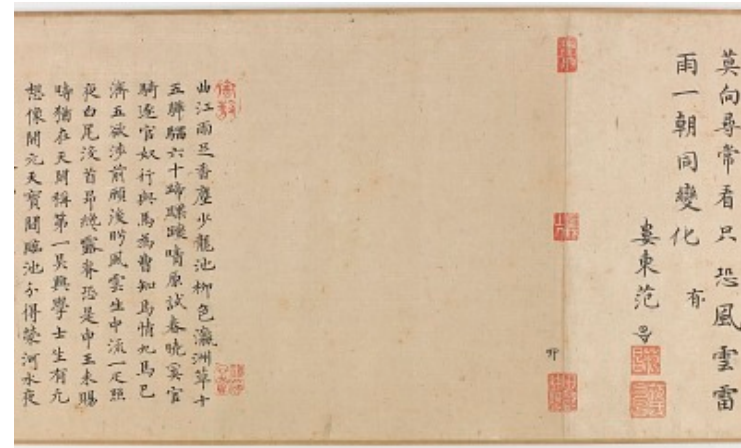 莫向尋常看只恐風雲雷
雨一朝同變化 有
婁東范昌
卯
曲江雨足香塵少龍池柳色瀛洲草十
五驊騮六十蹄蹀躞晴原試春曉奚官
騎逐官奴行與馬為曹知馬情九馬已
濟五欲涉前顧後盼風雲生中流一疋照
夜白尾沒首昂鬃露脊恐是申王未賜
時猶在天閑稱第一吴興學士生有元
想像開元天寶間臨池分得滎河水夜